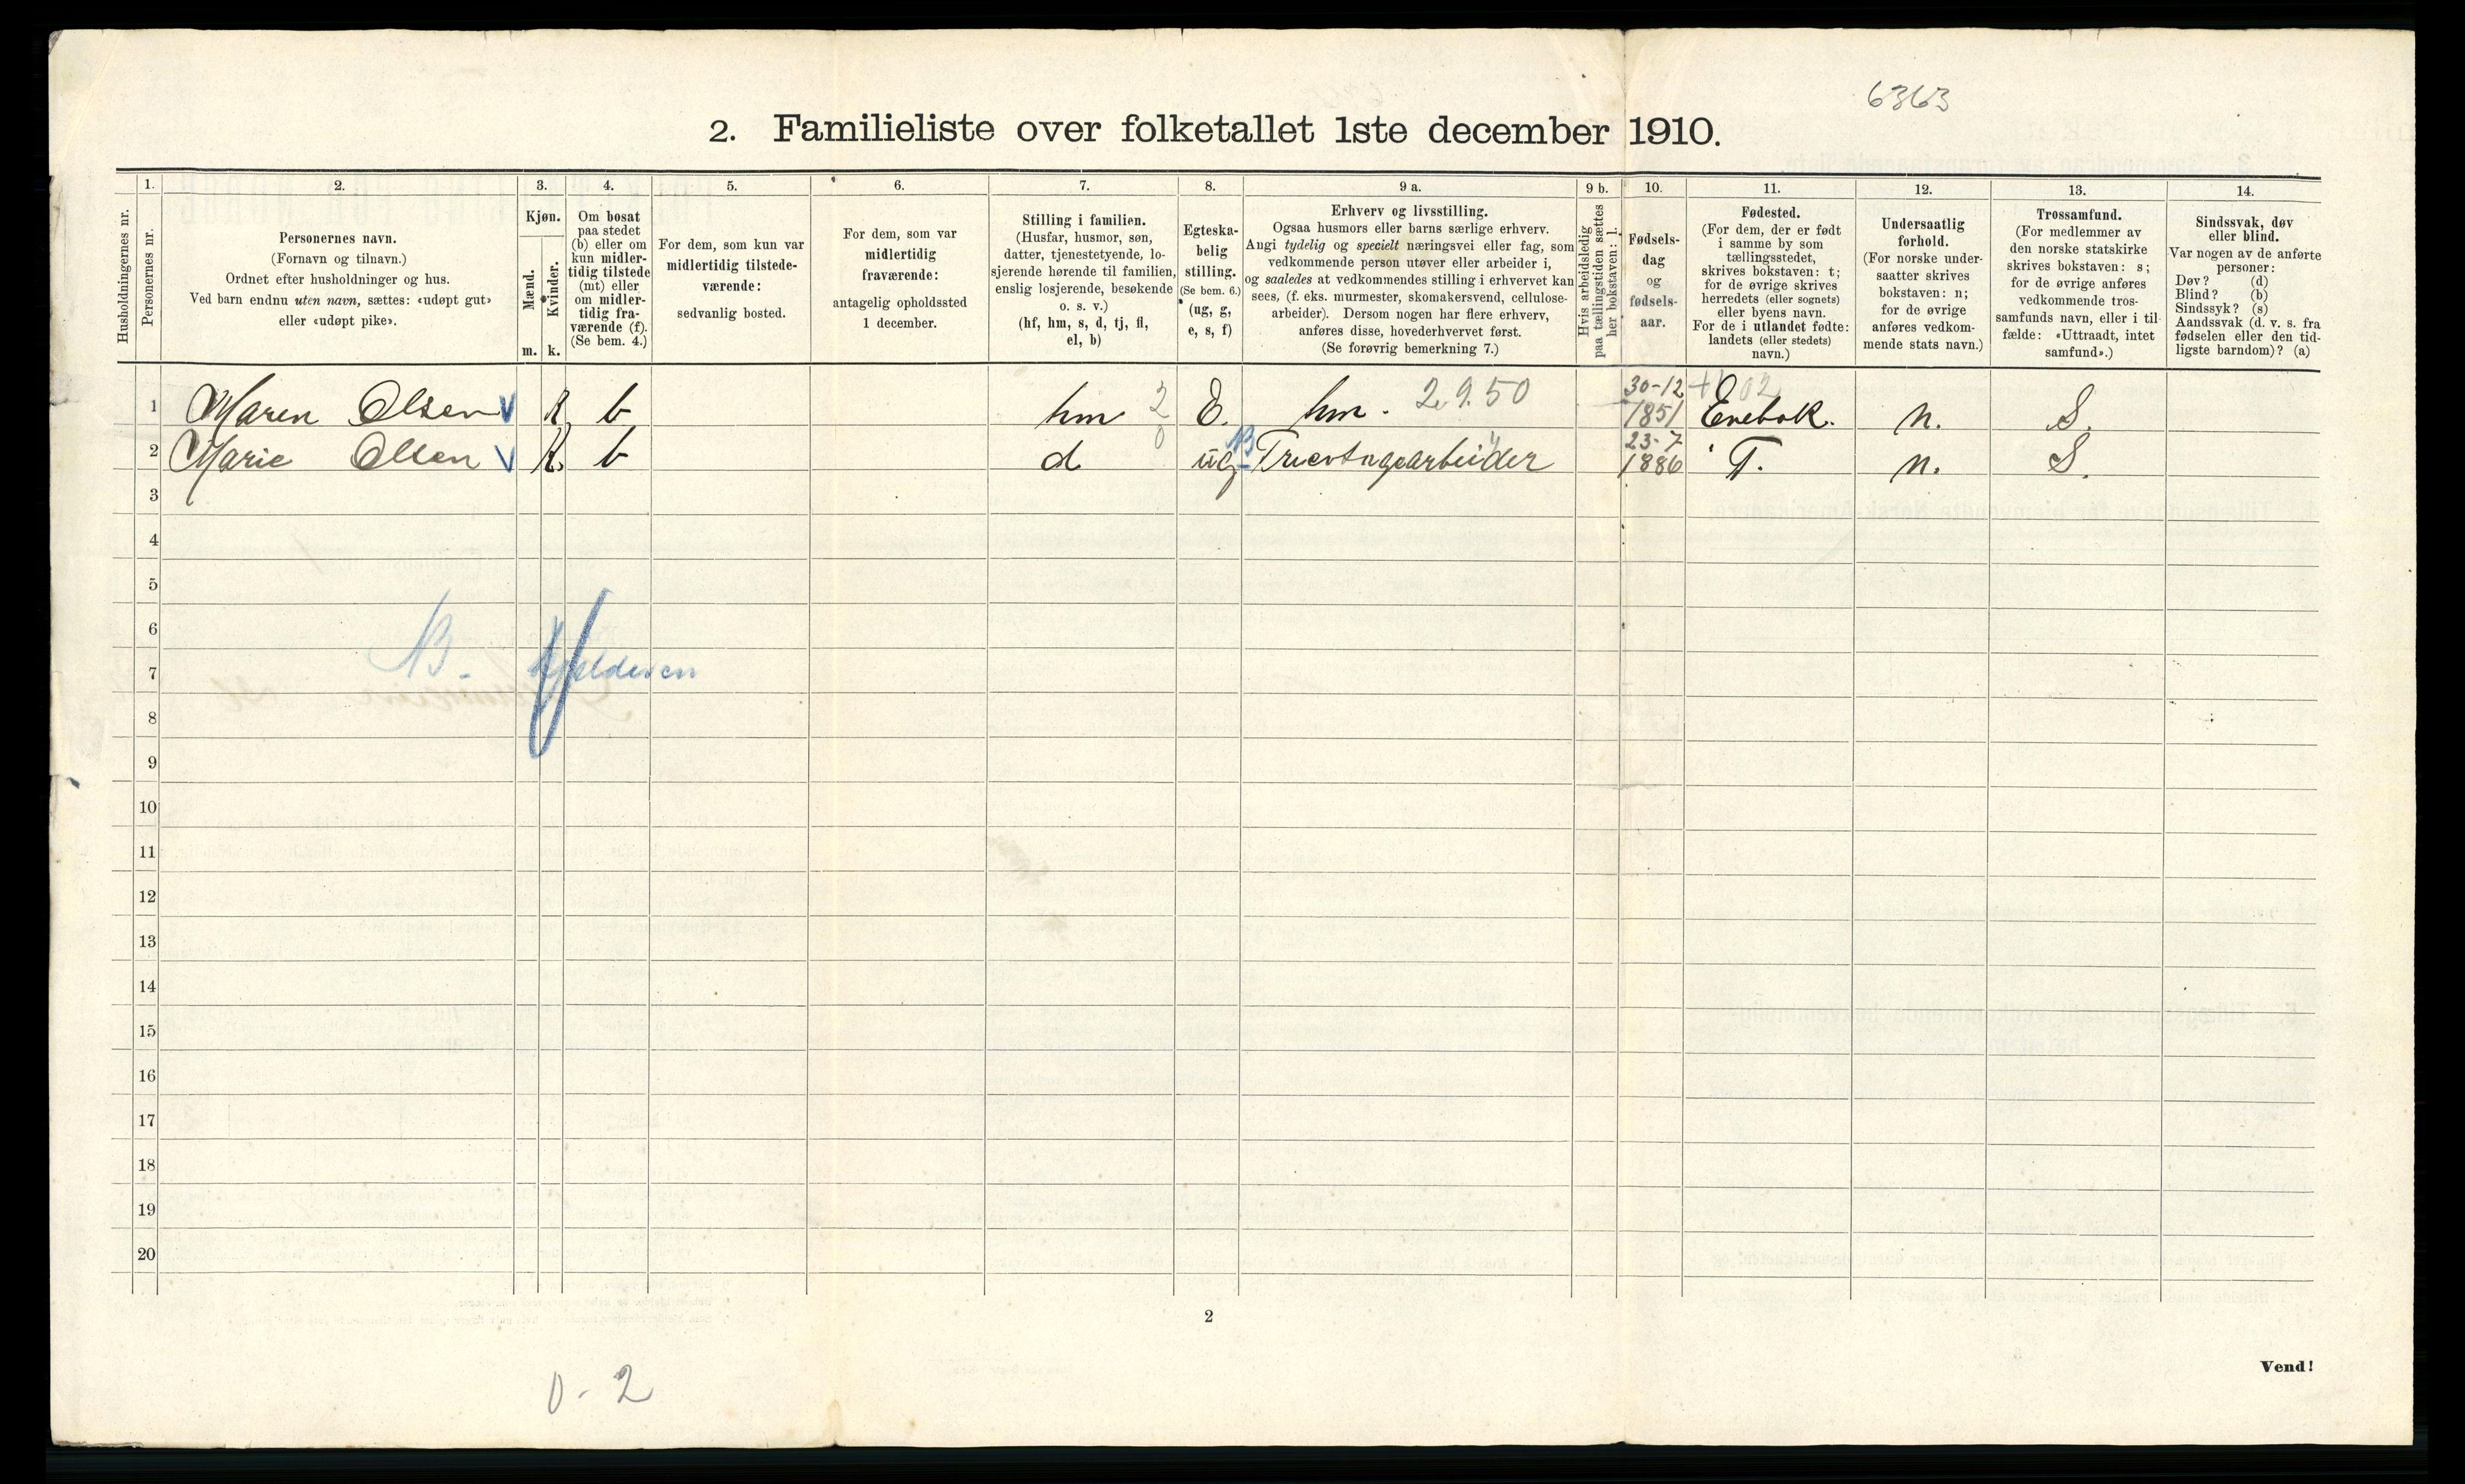 6363
2. Familieliste over folketallet 1ste december 1910.
1. 2. 3. 4. 5. 6. 7. 8. 9 a. 9 b. 10. 11. 12. 13. 14.
Husholdningernes nr.
Personernes nr.
Personernes navn.
(Fornavn og tilnavn.)
Ordnet efter husholdninger og hus.
Ved barn endnu uten navn, sættes: «udøpt gut»
eller «udøpt pike».
Kjøn.
Mænd.
Kvinder.
m. k.
Om bosat
paa stedet
(b) eller om
kun midler-
tidig tilstede
(mt) eller
om midler-
tidig fra-
værende (f).
(Se bem. 4.)
For dem, som kun var
midlertidig tilstede-
værende:
sedvanlig bosted.
For dem, som var
midlertidig
fraværende:
antagelig opholdssted
1 december.
Stilling i familien.
(Husfar, husmor, søn,
datter, tjenestetyende, lo-
sjerende hørende til familien,
enslig losjerende, besøkende
o. s. v.)
(hf, hm, s, d, tj, fl,
el, b)
Egteska-
belig
stilling.
(Se bem. 6.)
(ug, g,
e, s, f)
Erhverv og livsstilling.
Ogsaa husmors eller barns særlige erhverv.
Angi tydelig og specielt næringsvei eller fag, som
vedkommende person utøver eller arbeider i,
og saaledes at vedkommendes stilling i erhvervet kan
sees, (f. eks. murmester, skomakersvend, cellulose-
arbeider). Dersom nogen har flere erhverv,
anføres disse, hovederhvervet først.
(Se forøvrig bemerkning 7.)
Hvis arbeidsledig
paa tællingstiden sættes
her bokstaven: l.
Fødsels-
dag
og
fødsels-
aar.
Fødested.
(For dem, der er født
i samme by som
tællingsstedet,
skrives bokstaven: t;
for de øvrige skrives
herredets (eller sognets)
eller byens navn.
For de i utlandet fødte:
landets (eller stedets)
navn.)
Undersaatlig
forhold.
(For norske under-
saatter skrives
bokstaven: n;
for de øvrige
anføres vedkom-
mende stats navn.)
Trossamfund.
(For medlemmer av
den norske statskirke
skrives bokstaven: s;
for de øvrige anføres
vedkommende tros-
samfunds navn, eller i til-
fælde: «Uttraadt, intet
samfund».)
Sindssvak, døv
eller blind.
Var nogen av de anførte
personer:
Døv? (d)
Blind? (b)
Sindssyk? (s)
Aandssvak (d. v. s. fra
fødselen eller den tid-
ligste barndom)? (a)
1 Maren Olsen V K b hm 2 E. hm. 2.9.50 30-12 1851 02 Enebak. n. S.
2 Marie Olsen V K. b d 0 ug B 23-7 1886 T. n. S.
3
4
5
6
7
B.
8
9
10
11
12
13
14
15
16
17
18
19
20
2
Vend!
0-2